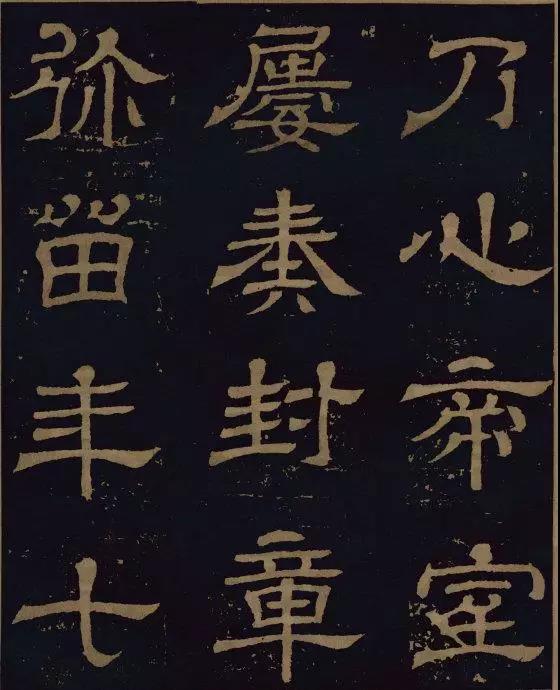 乃心帝室
屢奏封章
弥留年七